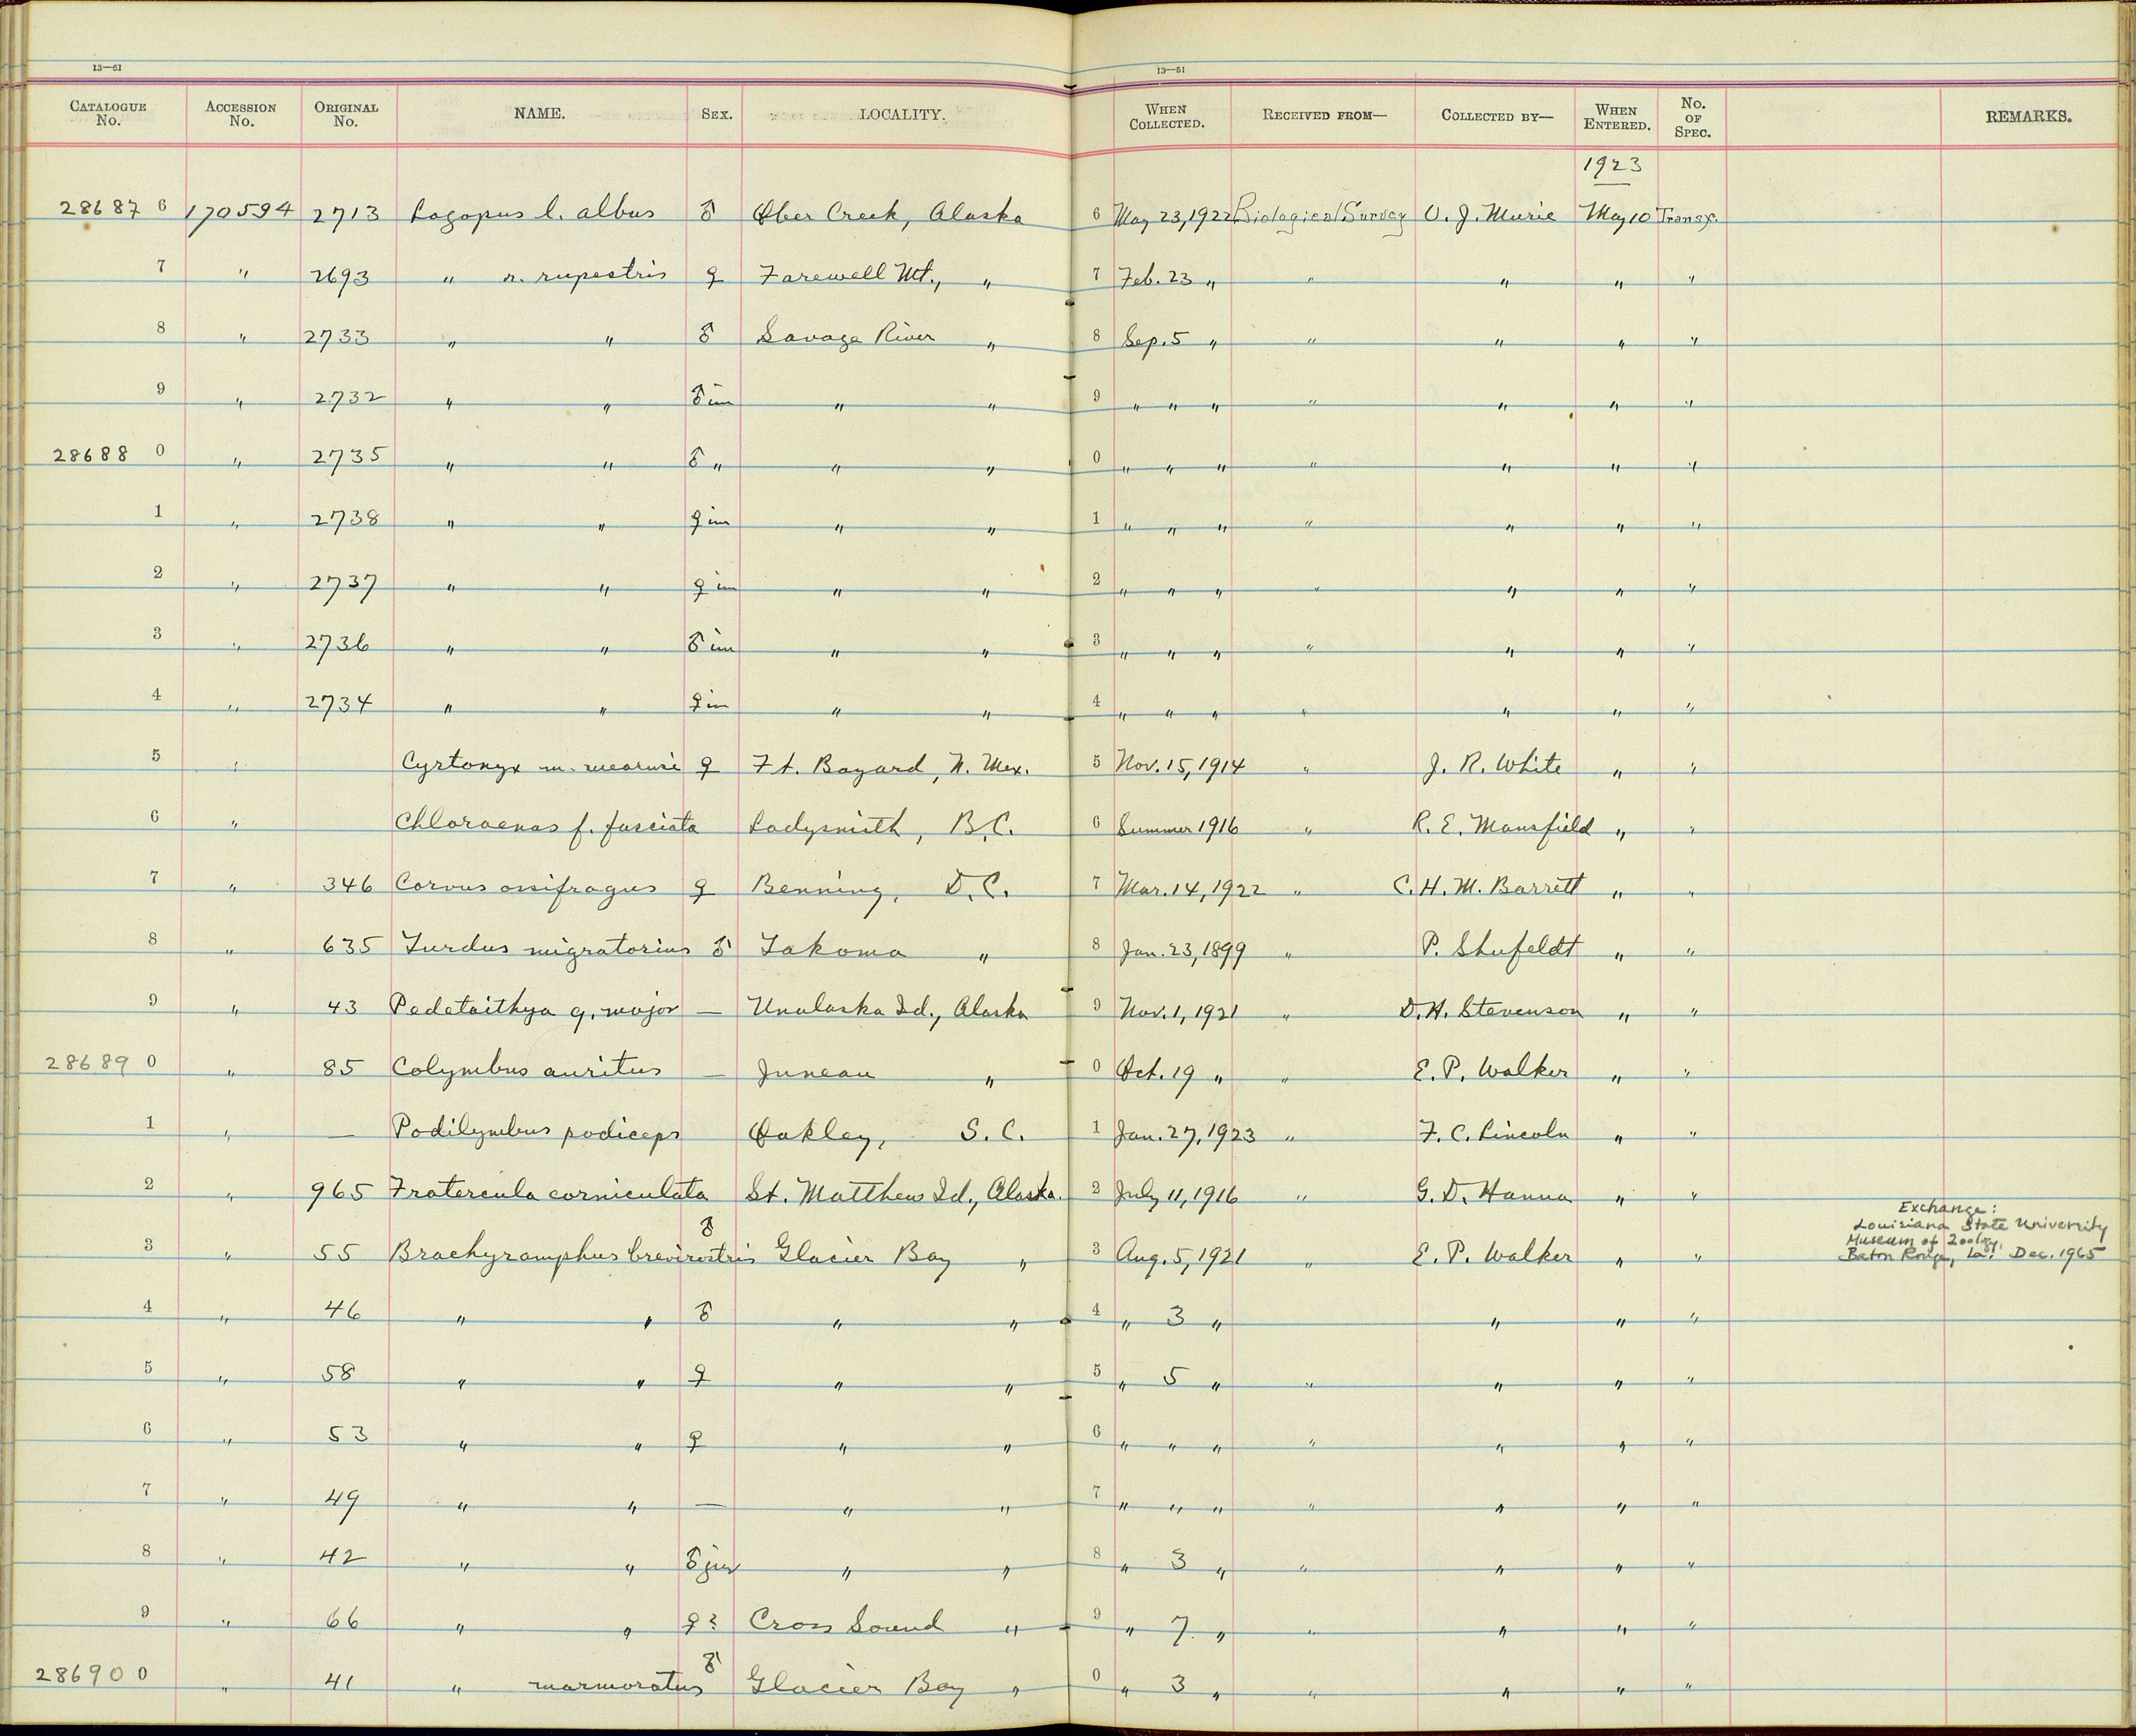 13—51 13—51
CATALOGUE No. ACCESSION No. ORIGINAL No. NAME. SEX. LOCALITY. WHEN COLLECTED. RECEIVED FROM— COLLECTED BY— WHEN ENTERED. No. OF SPEC. REMARKS.
1923
28687 6 170594 2713 Lagopus l. albus ♂ Ober Creek, Alaska 6 May 23, 1922 Biological Survey O. J. Murie May 10 Transf.
7 " 2693 " r. rupestris ♀ Farewell Mt., " 7 Feb. 23 " " " " "
8 " 2733 " " ♂ Savage River " 8 Sep. 5 " " " " "
9 " 2732 " " ♂ im " " 9 " " " " " " "
28688 0 " 2735 " " ♂ " " " 0 " " " " " " "
1 " 2738 " " ♀ im " " 1 " " " " " " "
2 " 2737 " " ♀ im " " 2 " " " " " " "
3 " 2736 " " ♂ im " " 3 " " " " " " "
4 " 2734 " " ♀ im " " 4 " " " " " " "
5 " Cyrtonyx m. mearnsi ♀ Ft. Bayard, N. Mex. 5 Nov. 15, 1914 " J. R. White " "
6 " Chloroenas f. fasciata Ladysmith, B.C. 6 Summer 1916 " R. E. Mansfield " "
7 " 346 Corvus ossifragus ♀ Benning, D.C. 7 Mar. 14, 1922 " C. H. M. Barrett " "
8 " 635 Turdus migratorius ♂ Takoma " 8 Jan. 23, 1899 " P. Shufeldt " "
9 " 43 Pedetaithya g. major — Unalaska Id., Alaska 9 Nov. 1, 1921 " D. H. Stevenson " "
28689 0 " 85 Colymbus auritus — Juneau " 0 Oct. 19 " " E. P. Walker " "
1 " — Podilymbus podiceps Oakley, S. C. 1 Jan. 27, 1923 " F. C. Lincoln " "
2 " 965 Fratercula corniculata St. Matthew Id., Alaska. 2 July 11, 1916 " G. D. Hanna " "
3 " 55 Brachyramphus brevirostris ♂ Glacier Bay " 3 Aug. 5, 1921 " E. P. Walker " "
Exchange:
Louisiana State University
Museum of Zoology,
Baton Rouge, La. Dec. 1965
4 " 46 " " ♂ " " 4 " 3 " " " "
5 " 58 " " ♀ " " 5 " 5 " " " " "
6 " 53 " " ♀ " " 6 " " " " " " "
7 " 49 " " — " " 7 " " " " " " "
8 " 42 " " ♂ juv " " 8 " 3 " " " " "
9 " 66 " " ♀? Cross Sound " 9 " 7 " " " " "
28690 0 " 41 " marmoratus ♂ Glacier Bay " 0 " 3 " " " " "